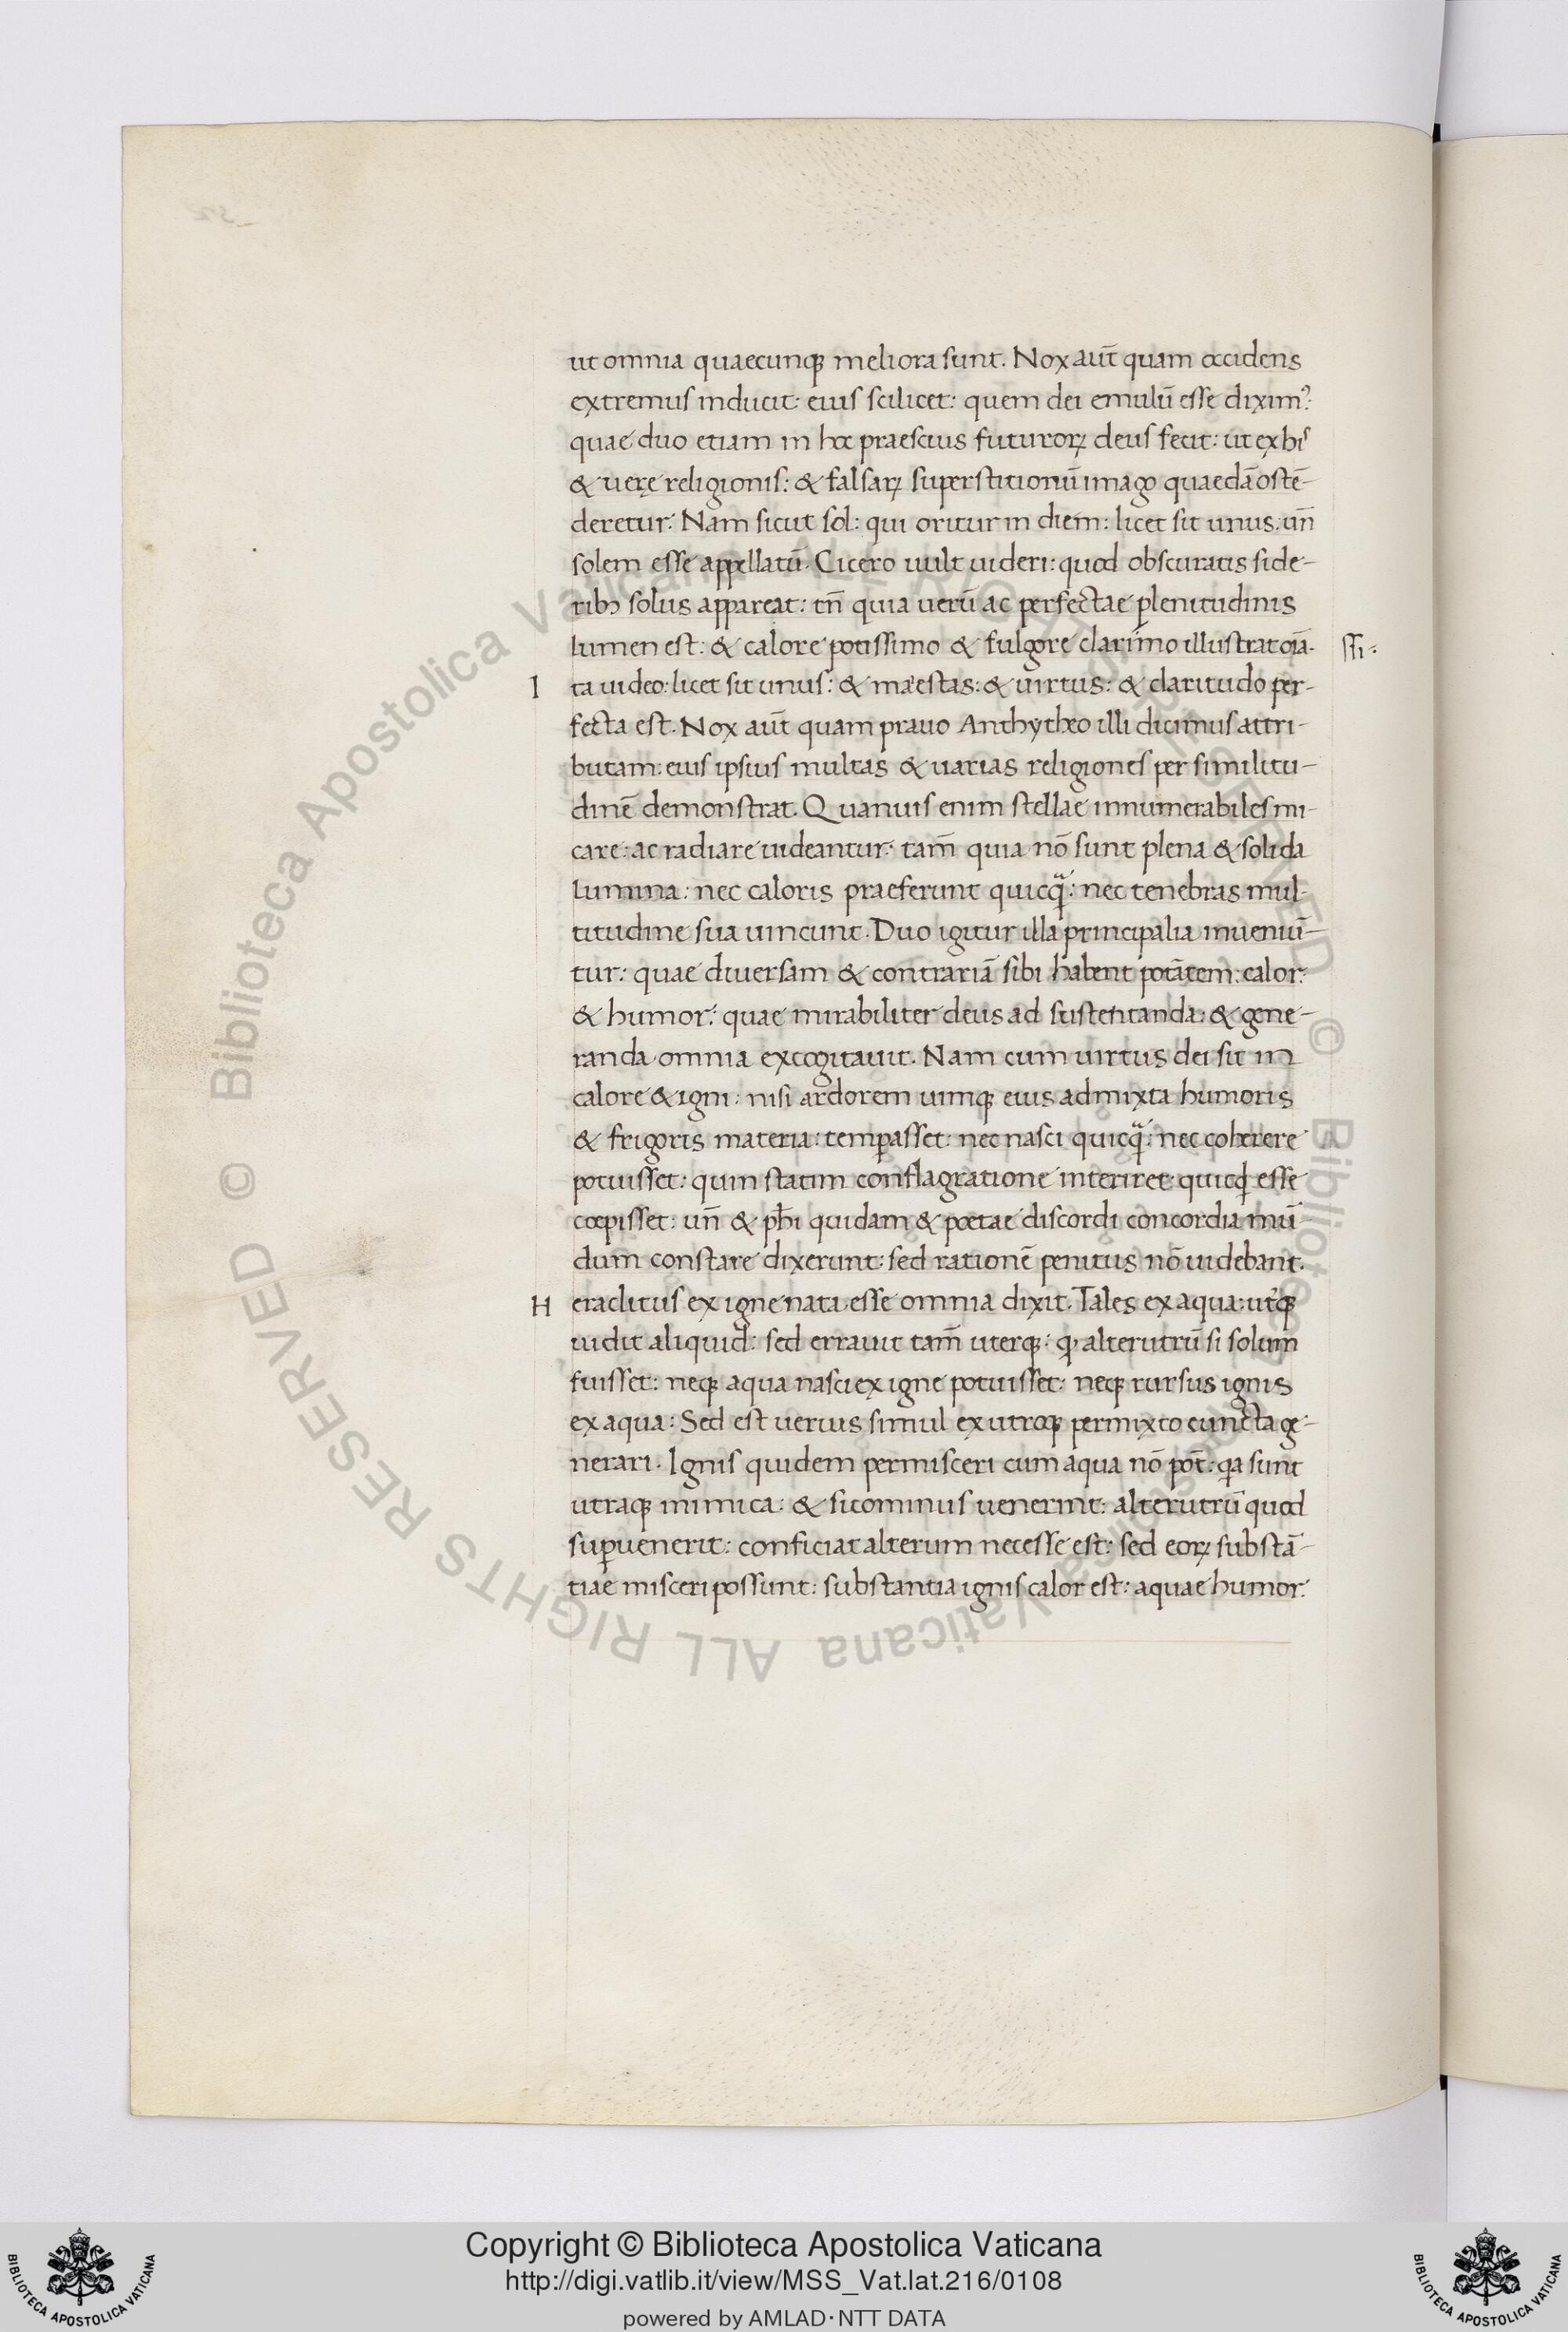 ut omnia quaecunqꝫ meliora sunt. Nox aut̄ quam occidens
extremus inducit: eius scilicet: quem dei emulū esse diximꝰ:
quae duo etiam in hoc praescius futuroꝝ deus fecit: ut ex his
& uerę religionis: & falsaꝝ superstitionū imago quaedā ostē-
deretur. Nam sicut sol: qui oritur in diem: licet sit unus: un̄
solem esse appellatū. Cicero uult uideri: quod obscuratis side-
ribꝫ solus appareat: tn̄ quia uerū ac perfectae plenitudinis
lumen est: & calore potissimo & fulgore clarimo illustrat oīa. ssi:
I ta uideo: licet sit unus: & maiestas: & uirtus: & claritudo per-
fecta est. Nox aut̄ quam prauo Anthytheo illi dicimus attri-
butam: eius ipsius multas & uarias religiones per similitu-
dinē demonstrat. Quanuis enim stellae innumerabiles mi-
care: ac radiare uideantur: tam̄ quia nō sunt plena & solida
lumina: nec caloris praeferunt quicq̄: nec tenebras mul-
titudine sua uincunt. Duo igitur illa principalia inueniū-
tur: quae diuersam & contrariā sibi habent potātem: calor:
& humor: quae mirabiliter deus ad sustentanda: & gene-
randa omnia excogitauit. Nam cum uirtus dei sit in
calore & igni: nisi ardorem uimqꝫ eius admixta humoris
& frigoris materia: temꝑasset: nec nasci quicq̄: nec coherere
potuisset: quin statim conflagratione interiret quicqd esse
coepisset: un̄ & phi quidam & poetae discordi concordia mū
dum constare dixerunt: sed rationē penitus nō uidebant.
H eraclitus ex igne nata esse omnia dixit. Tales ex aqua: utqꝫ
uidit aliquid: sed errauit tam̄ uterqꝫ: qꝫ alterutrū si solum
fuisset: neqꝫ aqua nasci ex igne potuisset: neqꝫ rursus ignis
ex aqua: Sed est uerius simul ex utroqꝫ permixto cuncta ge-
nerari. Ignis quidem permisceri cum aqua nō pot̄: qa sunt
utraqꝫ inimica: & si cominus uenerint: alterutrū quod
suꝑuenerit: conficiat alterum necesse est: sed eoꝝ substā-
tiae misceri possunt: substantia ignis calor est: aquae humor.
Copyright © Biblioteca Apostolica Vaticana
http://digi.vatlib.it/view/MSS_Vat.lat.216/0108
powered by AMLAD·NTT DATA
BIBLIOTECA APOSTOLICA VATICANA
BIBLIOTECA APOSTOLICA VATICANA
© Biblioteca Apostolica Vaticana ALL RIGHTS RESERVED © Biblioteca Apostolica Vaticana ALL RIGHTS RESERVED